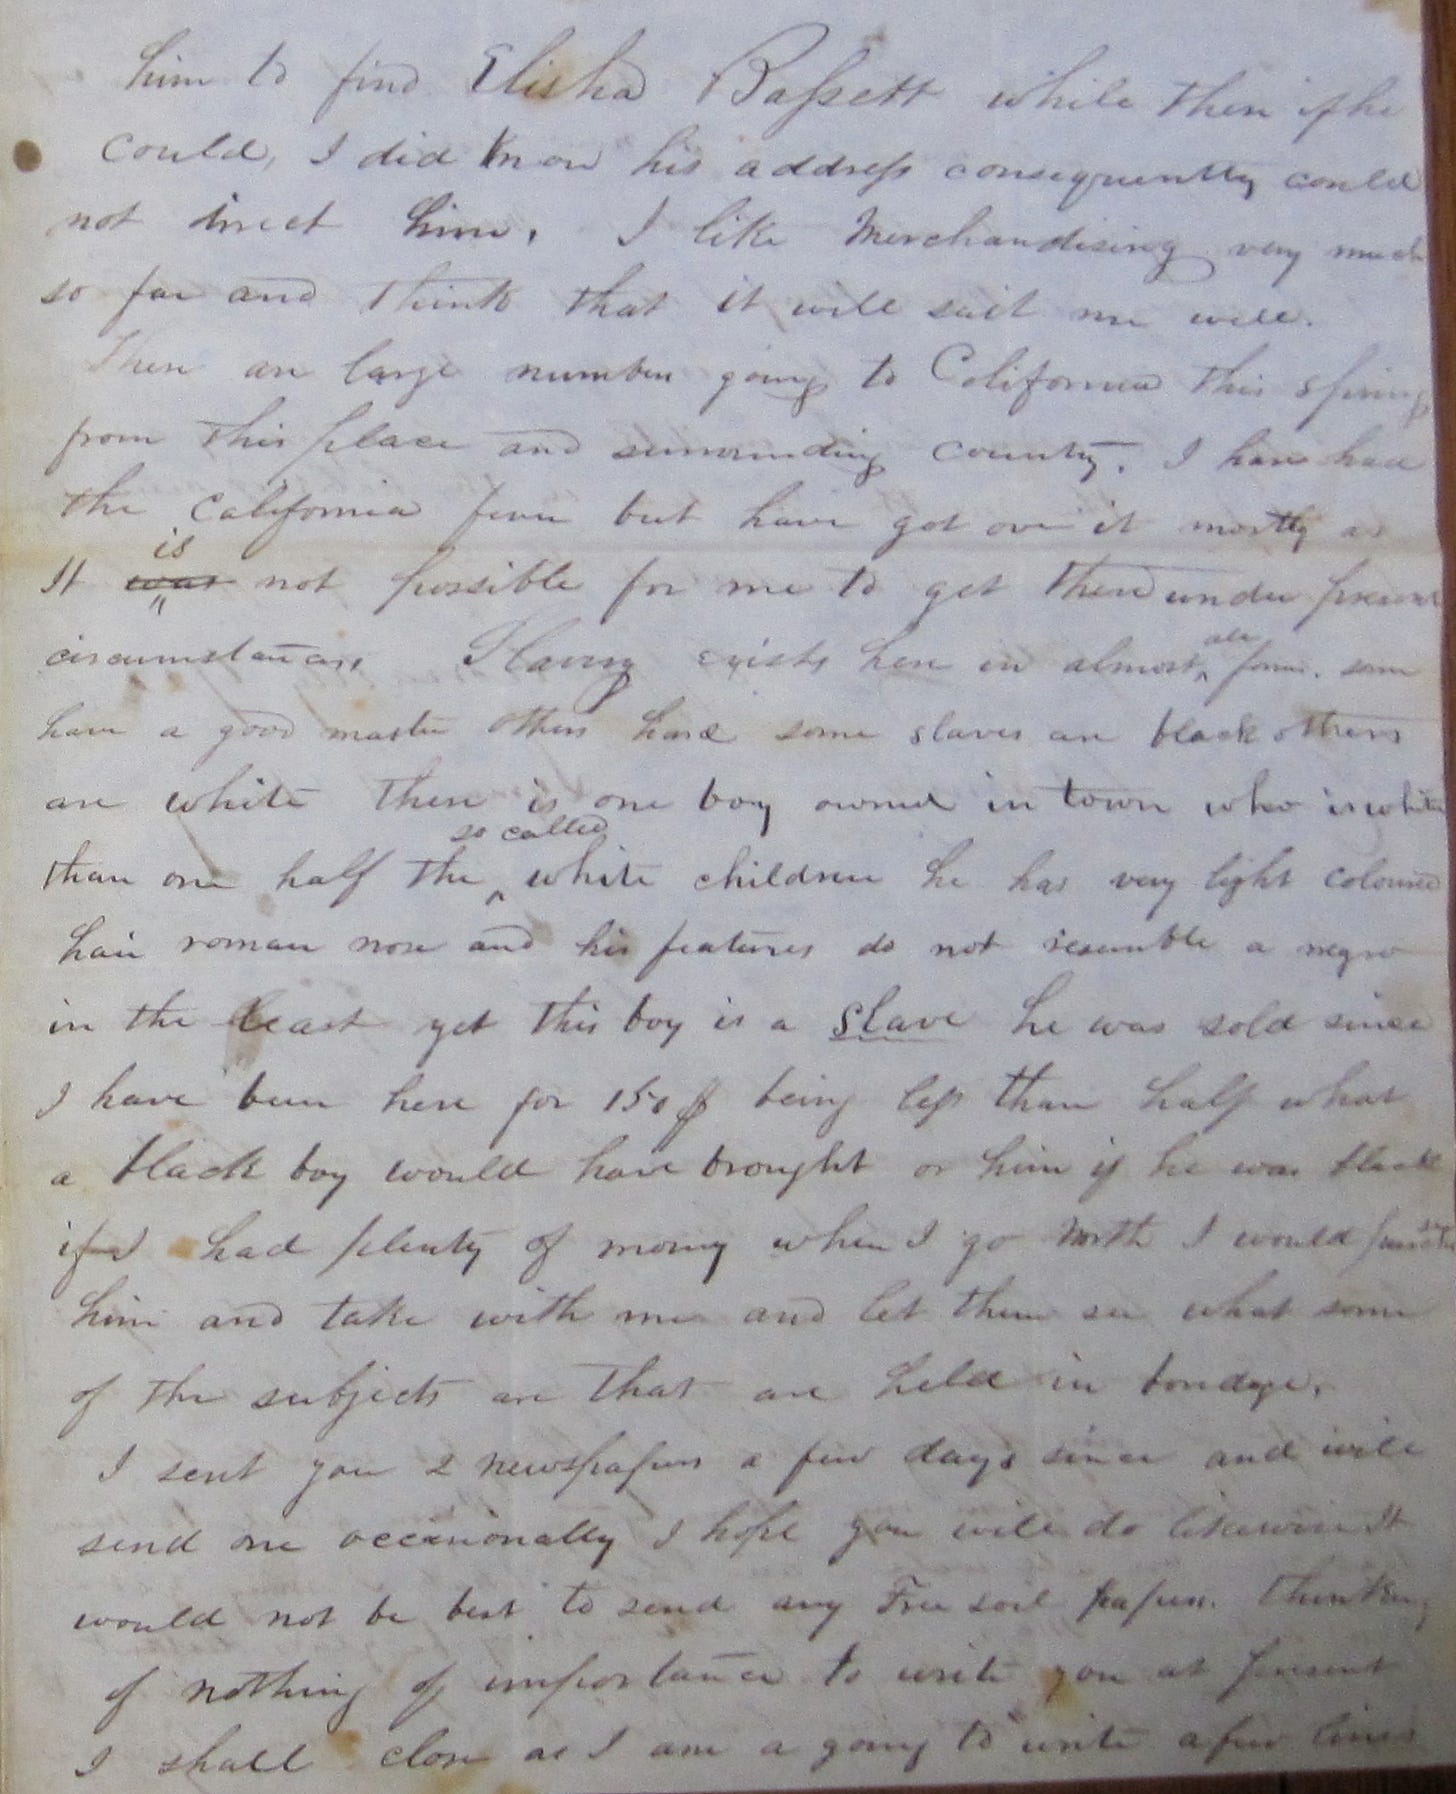 him to find Elisha Bassett while there if he
could, I did know his address consequently could
not direct him. I like Merchandising very much
so far and think that it will suit me well.
There are large number going to California this spring
from this place and surrounding county. I have had
the California fever but have got over it mostly as
It was is not possible for me to get there under present
circumstances Slavery exists here in almost all forms. some
have a good master others hard some slaves are black others
are white there is one boy owned in town who is whiter
than one half the so called white children he has very light coloured
hair roman nose and his features do not resemble a negro
in the least yet this boy is a slave he was sold since
I have been here for 150$ being less than half what
a black boy would have brought or him if he was black
if I had plenty of money when I go North I would purchase
him and take with me and let them see what some
of the subjects are that are held in bondage.
I sent you 2 newspapers a few days since and will
send one occasionally I hope you will do likewise It
would not be best to send any Free soil papers. Thinking
of nothing of importance to write you at present
I shall close as I am a going to write a few lines